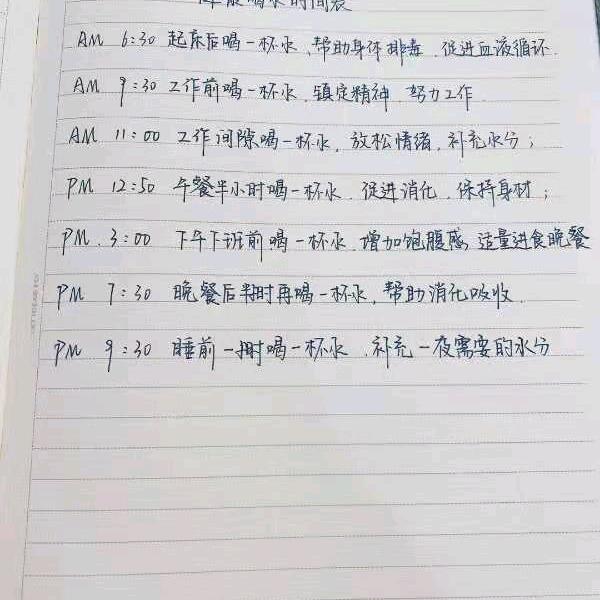 喝水时间表
AM 6:30 起床后喝一杯水、帮助身体排毒、促进血液循环.
AM 9:30 工作前喝一杯水、镇定精神、努力工作.
AM 11:00 工作间隙喝一杯水、放松情绪、补充水分;
PM 12:50 午餐半小时喝一杯水、促进消化、保持身材;
PM. 3:00 下午下班前喝一杯水、增加饱腹感、适量进食晚餐
PM 7:30 晚餐后半时再喝一杯水、帮助消化吸收.
PM 9:30 睡前一时喝一杯水、补充一夜需要的水分